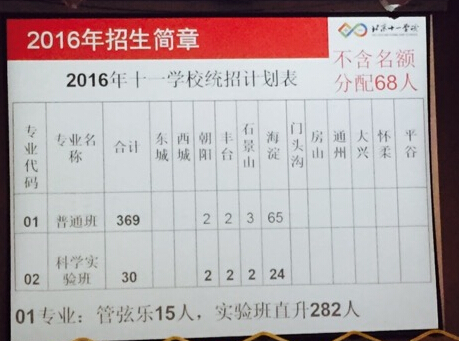 2016年招生简章
北京十一学校
不含名额
分配68人
2016年十一学校统招计划表
专业代码 专业名称 合计 东城 西城 朝阳 丰台 石景山 海淀 门头沟 房山 通州 大兴 怀柔 平谷
01 普通班 369 2 2 3 65
02 科学实验班 30 2 2 2 24
01专业：管弦乐15人，实验班直升282人